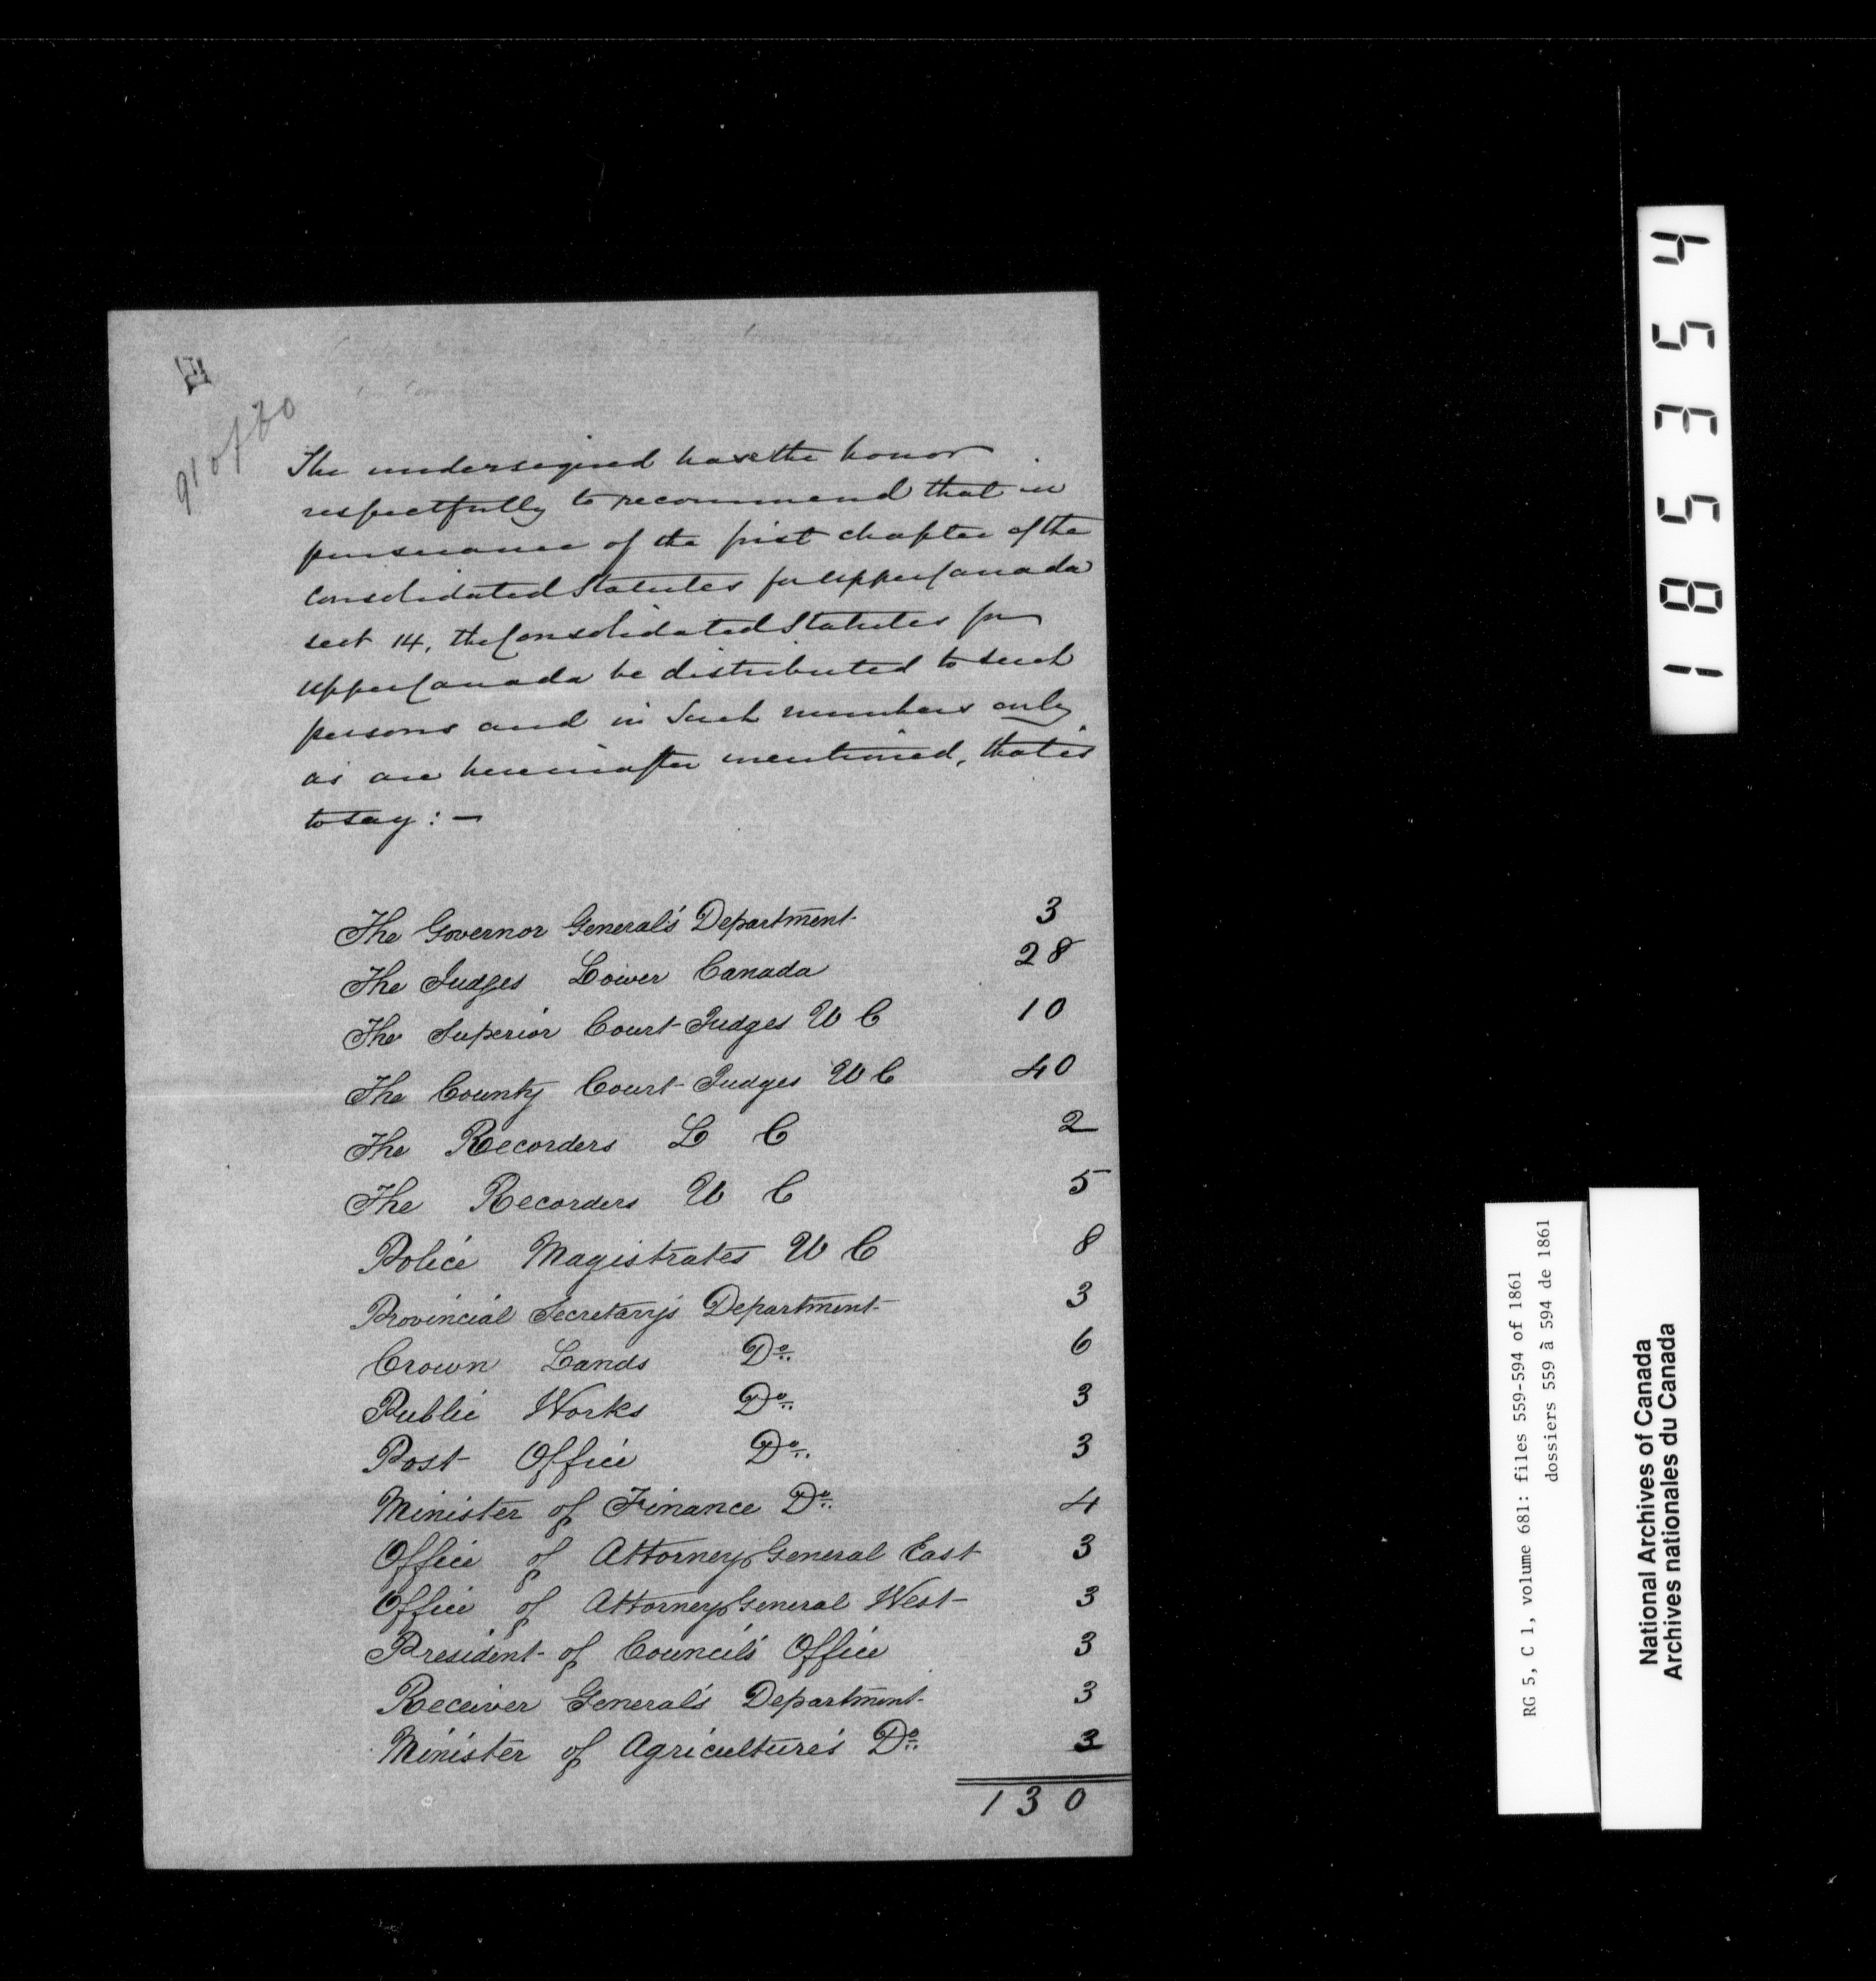 E
91 of 60
The undersigned have the honor
respectfully to recommend that in
pursuance of the first chapter of the
Consolidated Statutes for Upper Canada
sect 14, the Consolidated Statutes for
Upper Canada be distributed to such
persons and in such numbers only
as are hereinafter mentioned, that is
to say : —
The Governor General's Department 3
The Judges Lower Canada 28
The Superior Court Judges U C 10
The County Court Judges U C 40
The Recorders L C 2
The Recorders U C 5
Police Magistrates U C 8
Provincial Secretary's Department 3
Crown Lands Do 6
Public Works Do 3
Post Office Do 3
Minister of Finance Do 4
Office of Attorney General East 3
Office of Attorney General West 3
President of Council's Office 3
Receiver General's Department 3
Minister of Agriculture's Do 3
130
185354
RG 5, C 1, volume 681: files 559-594 of 1861
dossiers 559 à 594 de 1861
National Archives of Canada
Archives nationales du Canada